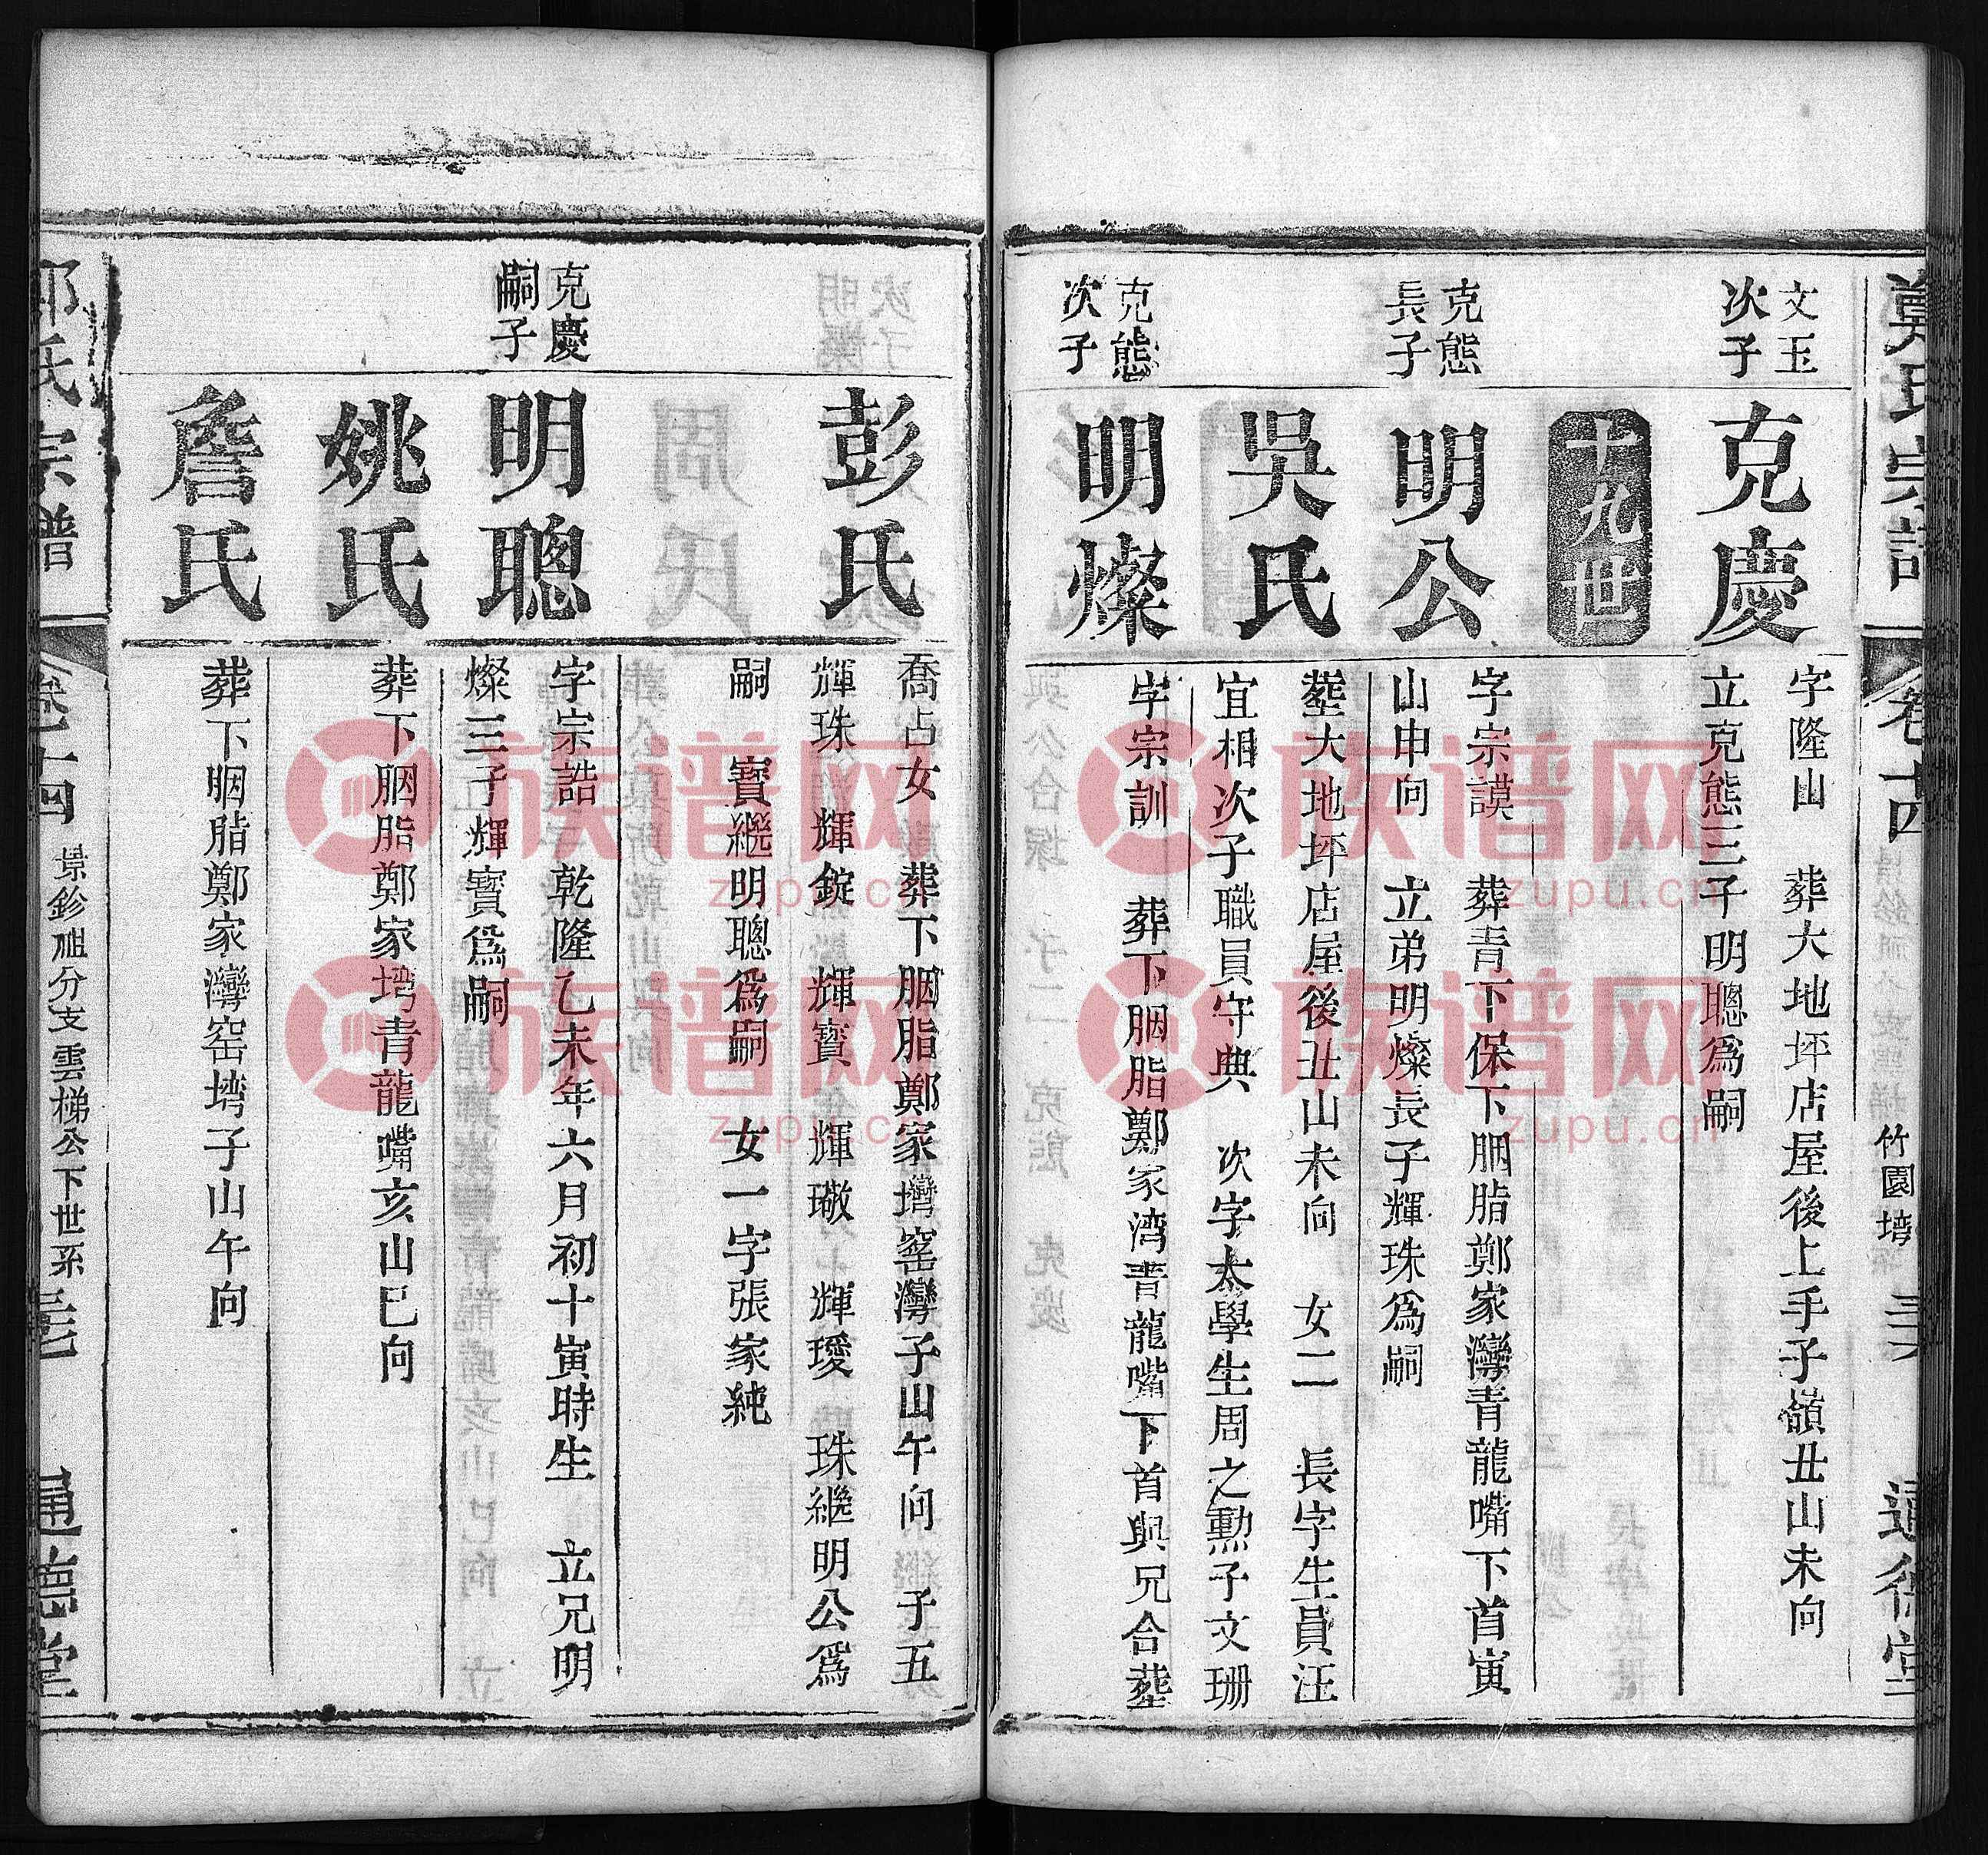 鄭氏宗譜
卷十四
竹園塆
三六
通德堂
文玉
次子
克慶
字隆山 葬大地坪店屋後上手子嶺丑山未向
立克態三子明聰爲嗣
十九世
克態
長子
明公
字宗謨 葬青下保下胭脂鄭家灣青龍嘴下首寅
山申向 立弟明燦長子輝珠爲嗣
吳氏
塟大地坪店屋後丑山未向 女二 長字生員汪
宜相次子職員守典 次字太學生周之勲子文珊
克態
次子
明燦
字宗訓 葬下胭脂鄭家湾青龍嘴下首與兄合塟
彭氏
喬占女 葬下胭脂鄭家塆窑灣子山午向 子五
輝珠 輝錠 輝寳 輝璥 輝璦 珠継明公爲
嗣 寳継明聰爲嗣 女一字張家純
克慶
嗣子
明聰
字宗誥 乾隆乙未年六月初十寅時生 立兄明
燦三子輝寳爲嗣
姚氏
葬下胭脂鄭家塆青龍嘴亥山巳向
詹氏
葬下胭脂鄭家灣窑塆子山午向
鄭氏宗譜
卷十四
景鉁祖分支雲梯公下世系
三七
通德堂
族谱网
zupu.cn
族谱网
zupu.cn
族谱网
zupu.cn
族谱网
zupu.cn